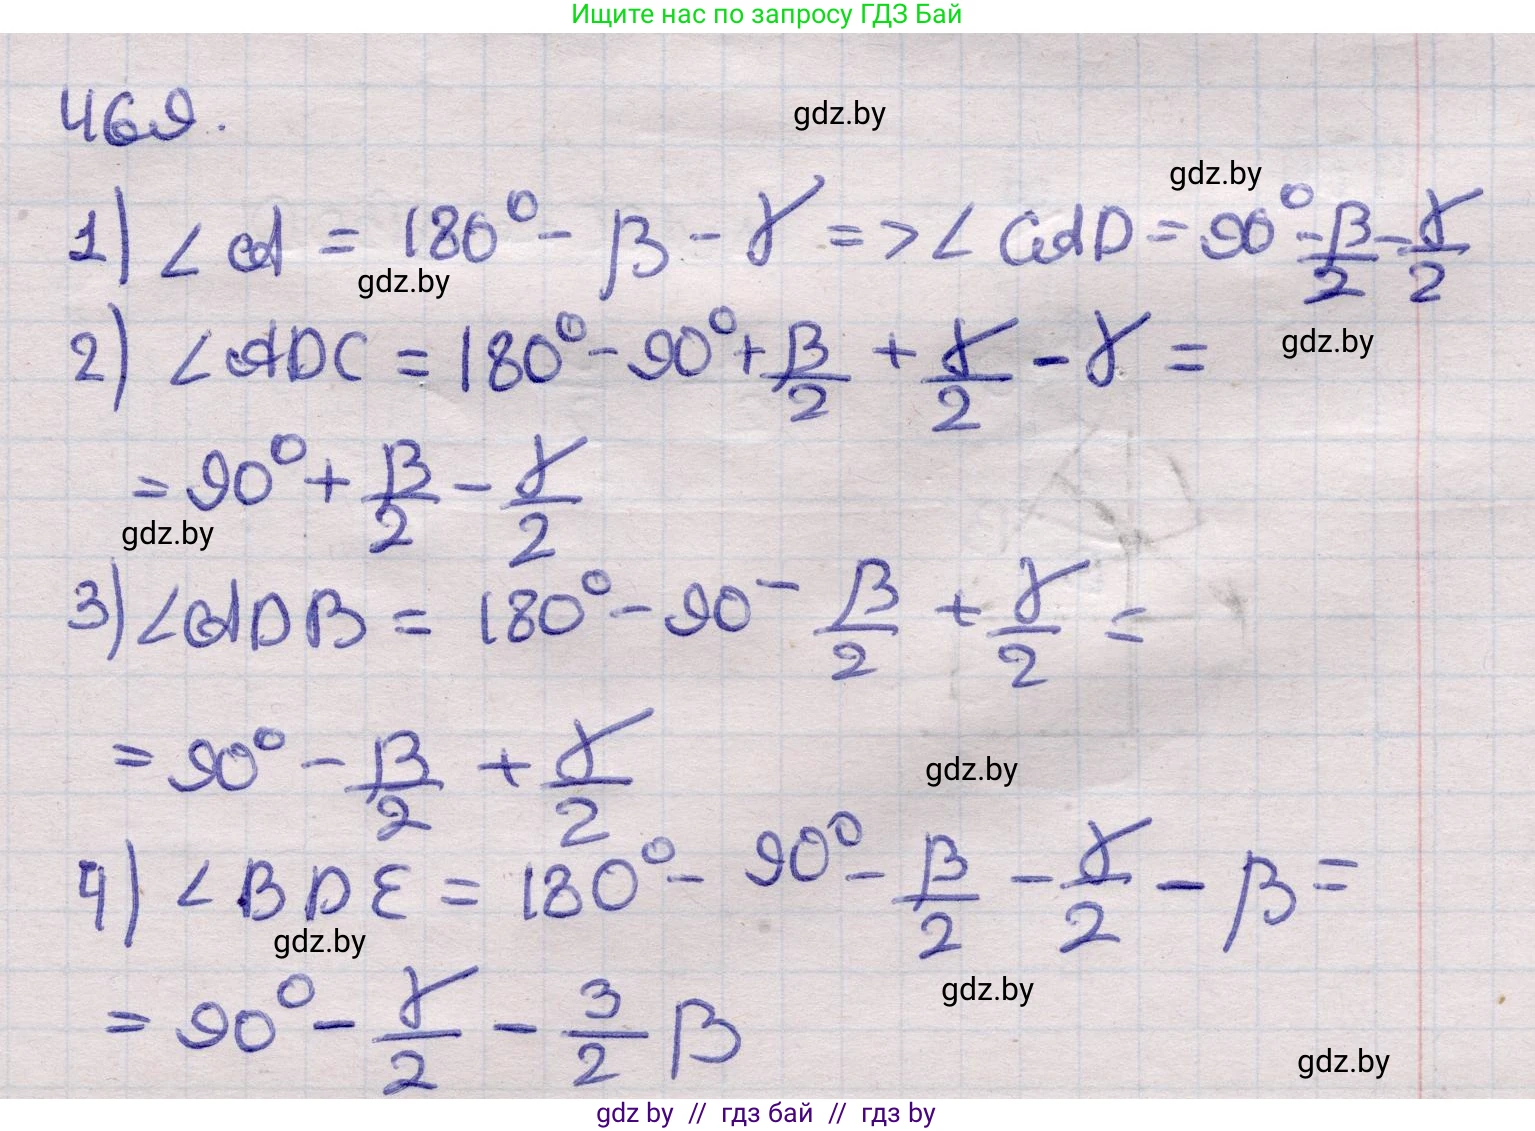 Ищите нас по запросу ГДЗ Бай
469.
gdz.by
gdz.by
1) ∠A = 180° - β - γ => ∠CAD = 90° - β/2 - γ/2
gdz.by
2) ∠ADC = 180° - 90° + β/2 + γ/2 - γ =
gdz.by
= 90° + β/2 - γ/2
gdz.by
3) ∠ADB = 180° - 90 - β/2 + γ/2 =
= 90° - β/2 + γ/2
gdz.by
4) ∠BDE = 180° - 90° - β/2 - γ/2 - β =
gdz.by
gdz.by
= 90° - γ/2 - 3/2 β
gdz.by
gdz by // гдз бай // гдз by